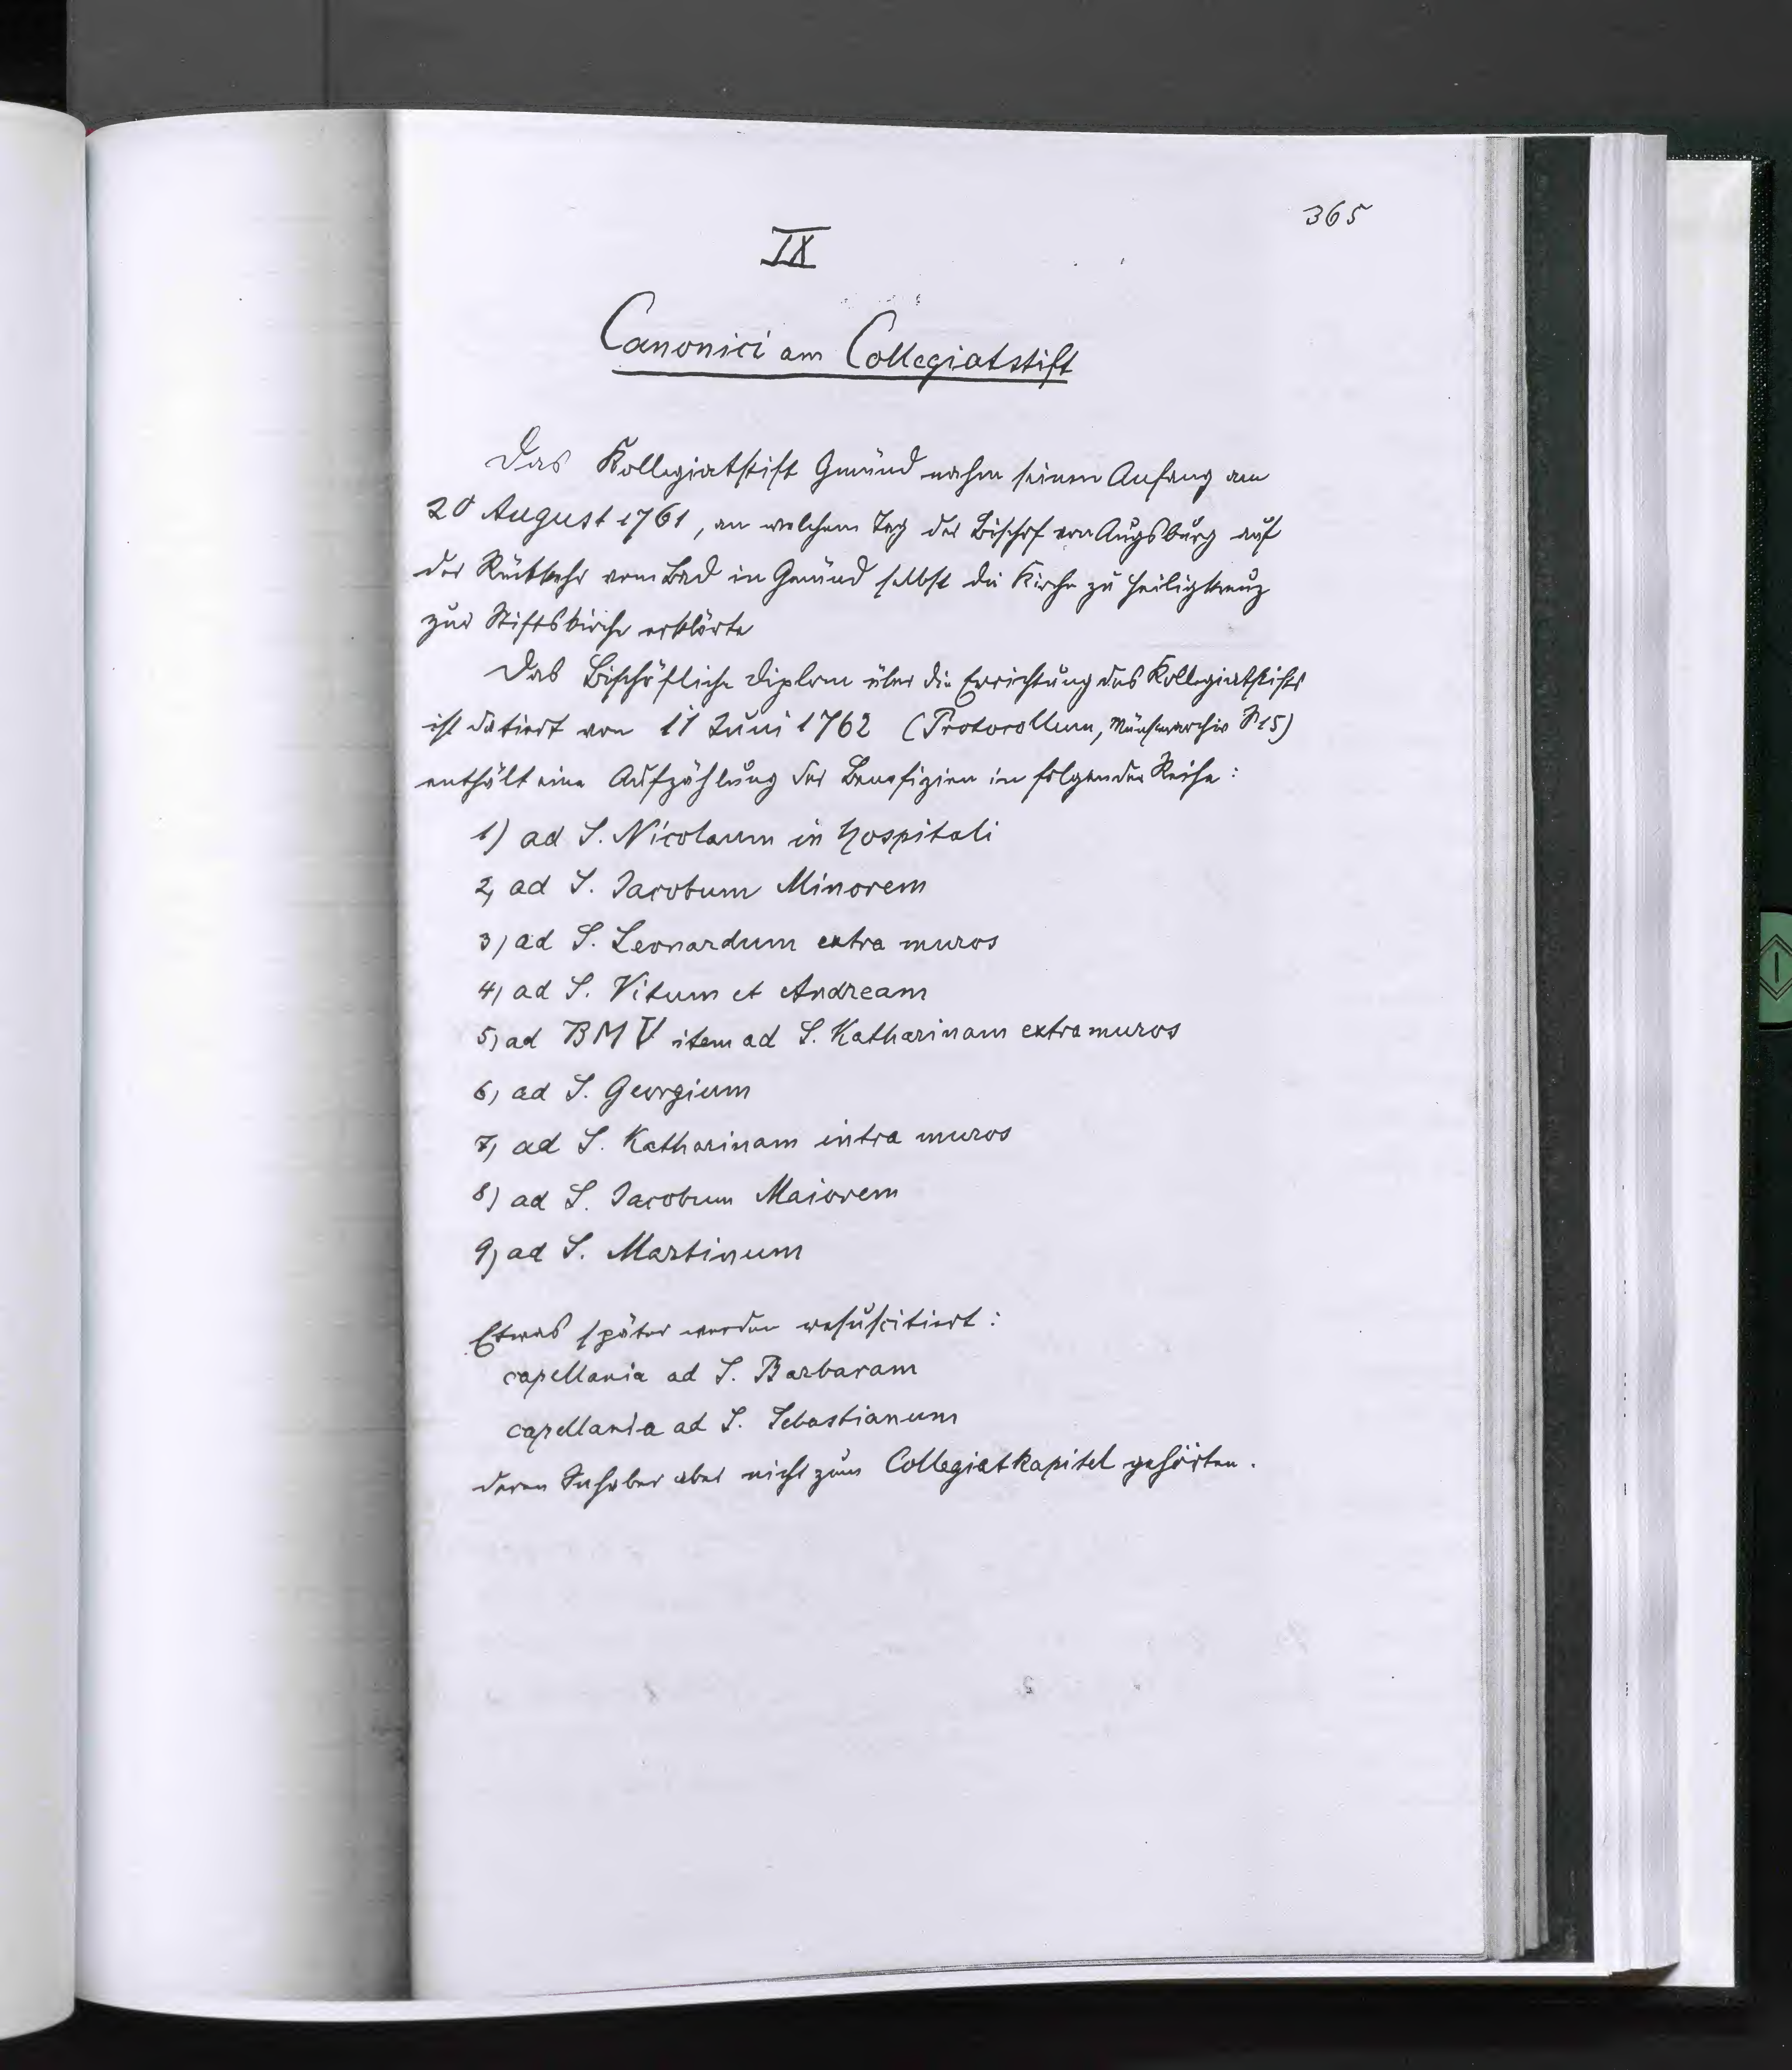 365
IX
Canonici am Collegiatstift
Das Kollegiatstift Gmünd nahm seinen Anfang am
20 August 1761, an welchem Tag der Bischof von Augsburg auf
der Rückkehr vom Bad in Gmünd selbst die Kirche zu Heiligkreuz
zur Stiftskirche erklärte
Das Bischöfliche Diplom über die Errichtung des Kollegiatstifts
ist datiert von 11 Juni 1762 (Protocollum, Münsterarchiv 15)
enthält eine Aufzählung der Benefizien in folgender Reihe:
1) ad S. Nicolaum in hospitali
2, ad S. Jacobum Minorem
3) ad S. Leonardum extra muros
4) ad S. Vitum et Andream
5) ad BMV item ad S. Katharinam extra muros
6, ad S. Georgium
7, ad S. Katharinam intra muros
8) ad S. Jacobum Maiorem
9) ad S. Martinum
Etwas später werden resuscitiert:
capellania ad S. Barbaram
capellania ad S. Sebastianum
deren Inhaber aber nicht zum Collegiatkapitel gehörten.